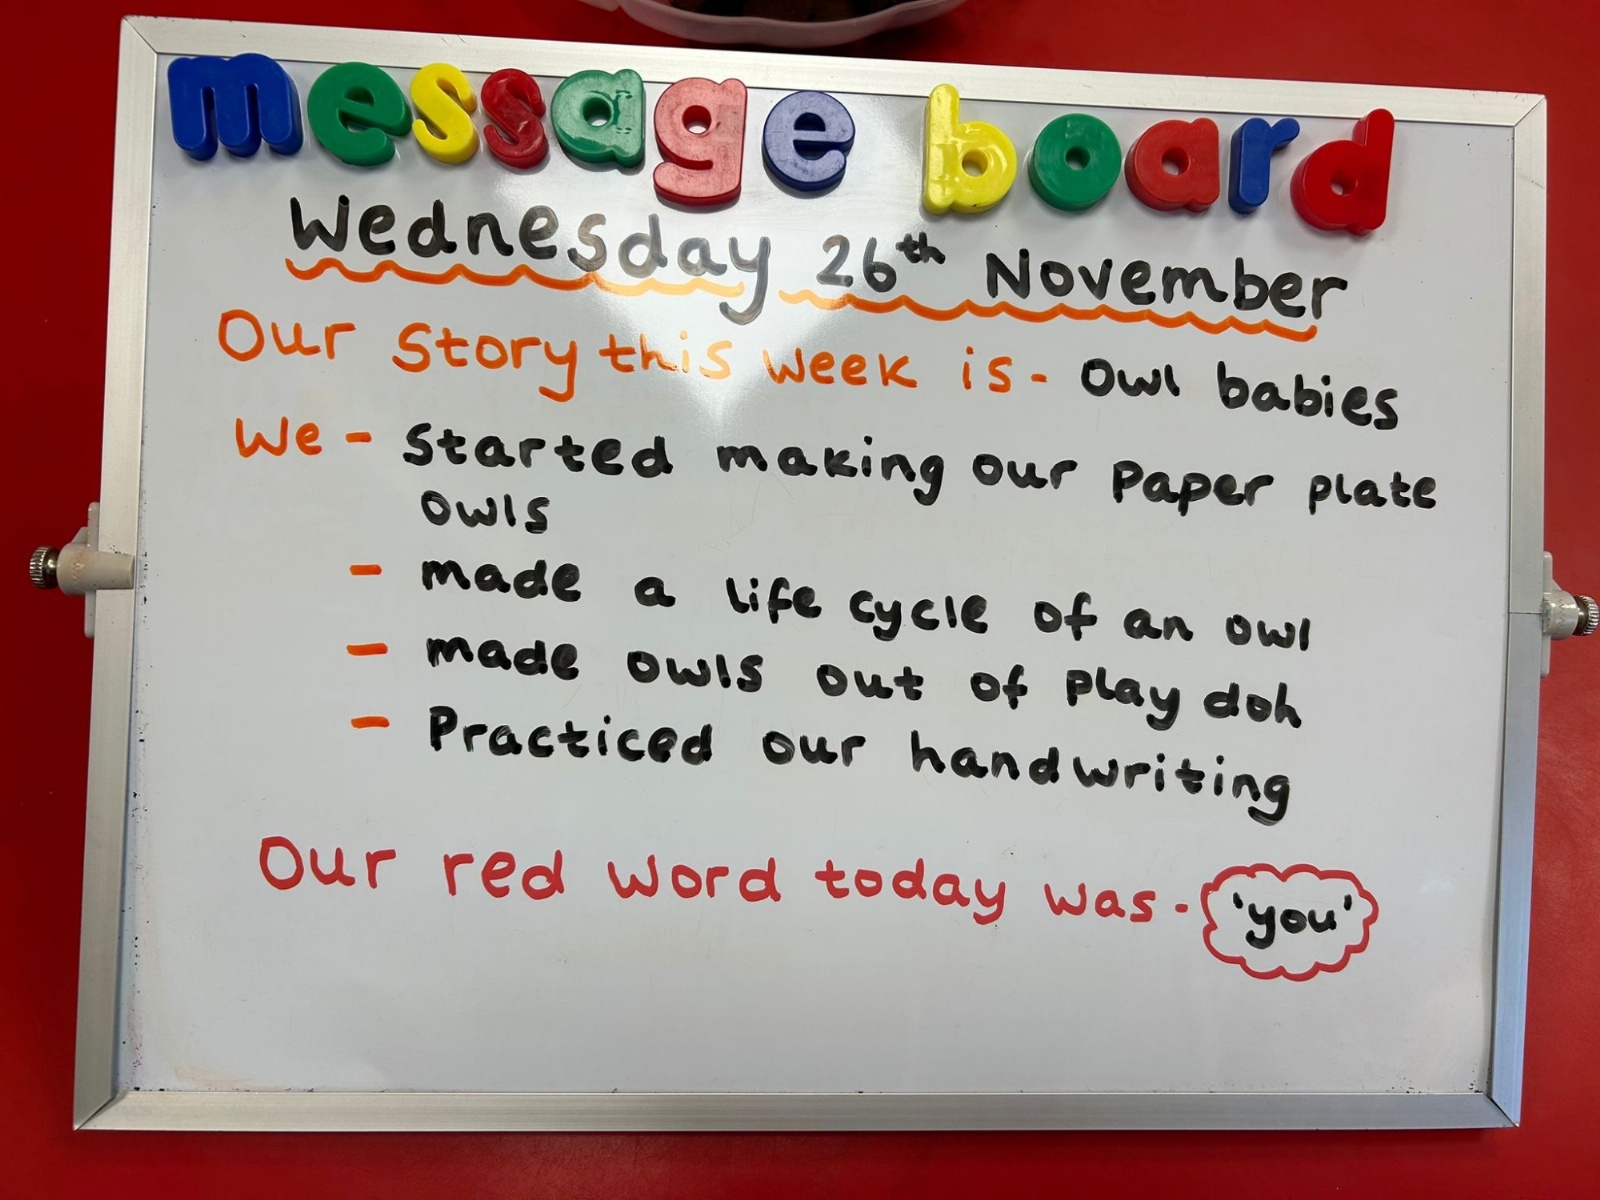 message board
Wednesday 26th November
Our story this week is - Owl babies
We - Started making our paper plate
owls
- made a life cycle of an owl
- made owls out of play doh
- Practiced our handwriting
Our red word today was - 'you'